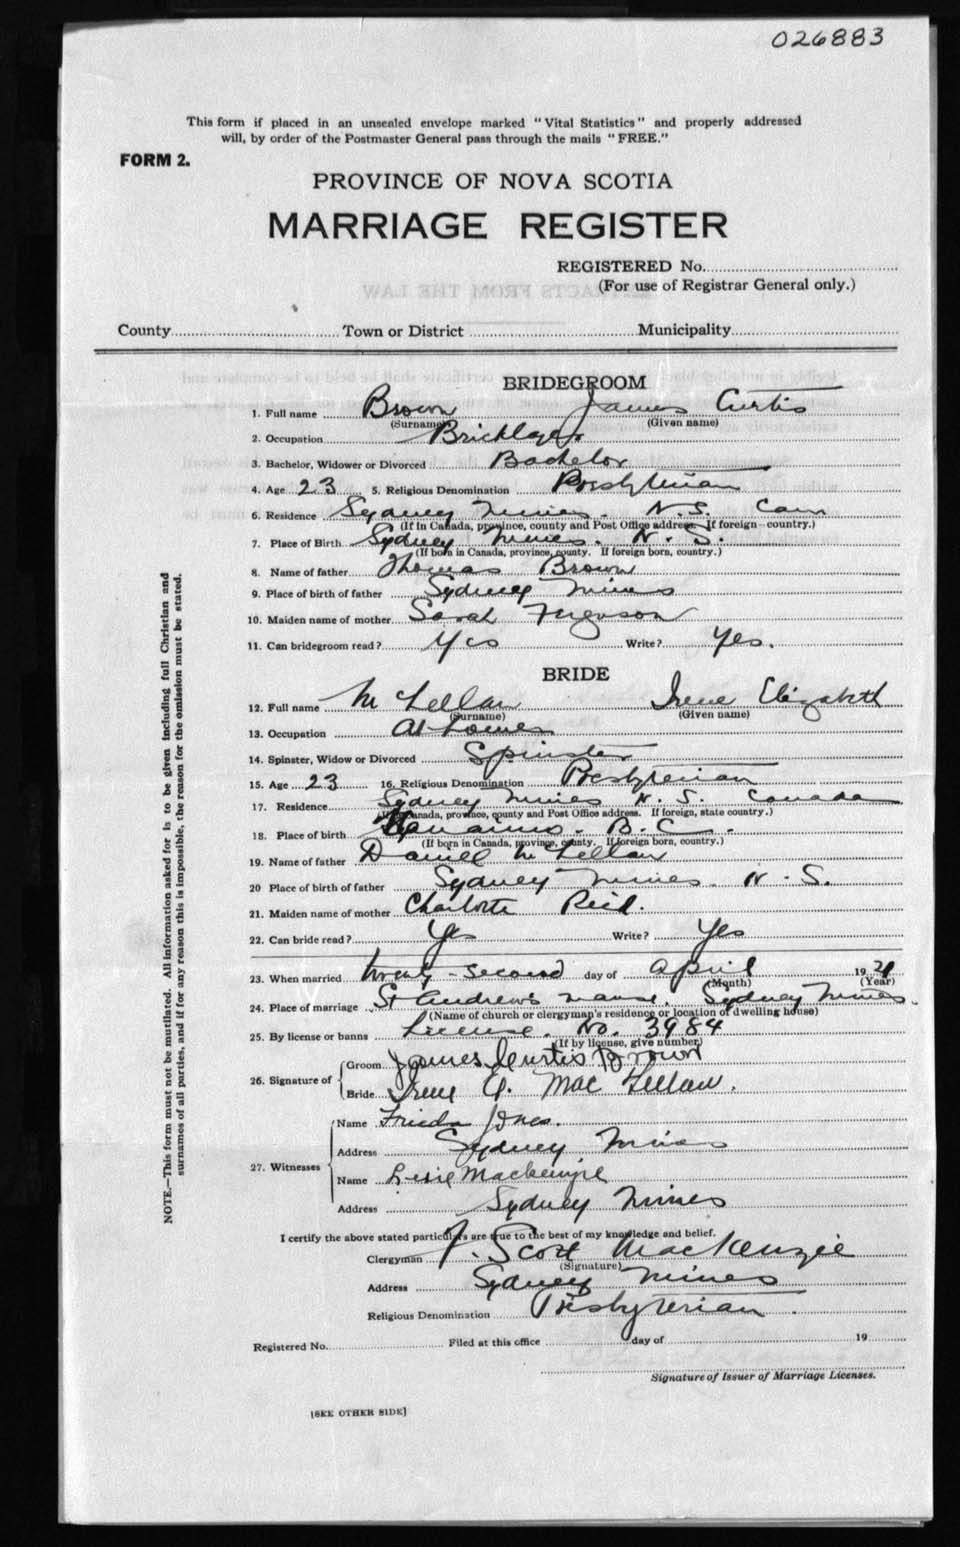 026883
This form if placed in an unsealed envelope marked "Vital Statistics" and properly addressed
will, by order of the Postmaster General pass through the mails "FREE."
FORM 2.
PROVINCE OF NOVA SCOTIA
MARRIAGE REGISTER
REGISTERED No.
(For use of Registrar General only.)
County Town or District Municipality
BRIDEGROOM
1. Full name Brown James Curtis
(Surname) (Given name)
2. Occupation Bricklayer
3. Bachelor, Widower or Divorced Bachelor
4. Age 23 5. Religious Denomination Presbyterian
6. Residence Sydney Mines. N.S. Can
(If in Canada, province, county and Post Office address. If foreign country.)
7. Place of Birth Sydney Mines. N.S.
(If born in Canada, province, county. If foreign born, country.)
8. Name of father Thomas Brown
9. Place of birth of father Sydney Mines
10. Maiden name of mother Sarah Ferguson
11. Can bridegroom read? Yes Write? Yes.
BRIDE
12. Full name McLellan Irene Elizabeth
(Surname) (Given name)
13. Occupation At home
14. Spinster, Widow or Divorced Spinster
15. Age 23 16. Religious Denomination Presbyterian
17. Residence Sydney Mines N.S. Canada
(If in Canada, province, county and Post Office address. If foreign, state country.)
18. Place of birth Nanaimo. B.C.
(If born in Canada, province, county. If foreign born, country.)
19. Name of father Daniel McLellan
20 Place of birth of father Sydney Mines. N.S.
21. Maiden name of mother Charlotte Reid.
22. Can bride read? Yes Write? Yes
23. When married twenty-second day of April 19
(Month) (Year)
24. Place of marriage St Andrew's manse. Sydney Mines.
(Name of church or clergyman's residence or location of dwelling house)
25. By license or banns License. No. 3984
(If by license, give number)
26. Signature of Groom James Curtis Brown
Bride Irene E. MacLellan.
27. Witnesses Name Frieda Jones.
Address Sydney Mines
Name Mackenzie
Address Sydney Mines
I certify the above stated particulars are true to the best of my knowledge and belief.
Clergyman J. Scott MacKenzie
(Signature)
Address Sydney Mines
Religious Denomination Presbyterian.
Registered No. Filed at this office day of 19
Signature of Issuer of Marriage Licenses.
[SEE OTHER SIDE]
NOTE.—This form must not be mutilated. All information asked for is to be given including full Christian and
surnames of all parties, and if for any reason this is impossible, the reason for the omission must be stated.